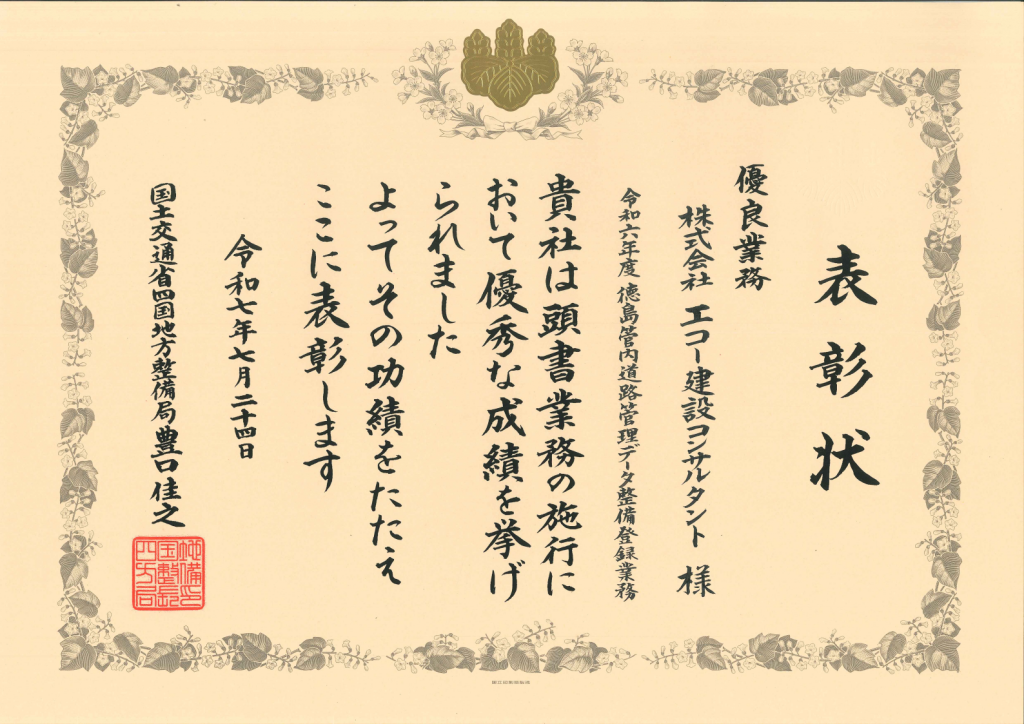 表彰状
優良業務
株式会社 エコー建設コンサルタント 様
令和六年度 徳島管内道路管理データ整備登録業務
貴社は頭書業務の施行に
おいて優秀な成績を挙げ
られました
よってその功績をたたえ
ここに表彰します
令和七年七月二十四日
国土交通省四国地方整備局 豊口佳之